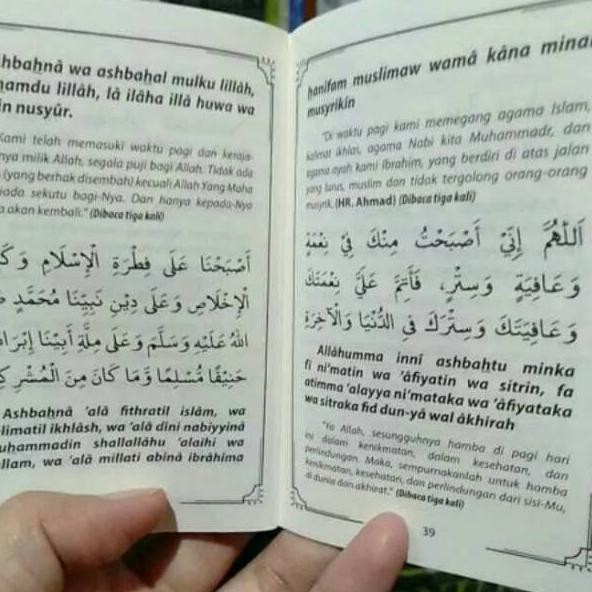 hbahnâ wa ashbahal mulku lillâh,
amdu lillâh, lâ ilâha illâ huwa wa
in nusyûr.
Kami telah memasuki waktu pagi dan keraja-
nya milik Allah, segala puji bagi Allah. Tidak ada
(yang berhak disembah) kecuali Allah Yang Maha
iada sekutu bagi-Nya. Dan hanya kepada-Nya
a akan kembali." (Dibaca tiga kali)
أَصْبَحْنَا عَلَى فِطْرَةِ الْإِسْلَامِ وَكَ
الْإِخْلَاصِ وَعَلَى دِيْنِ نَبِيِّنَا مُحَمَّدٍ
اللهُ عَلَيْهِ وَسَلَّمَ وَعَلَى مِلَّةِ أَبِيْنَا إِبْرَا
حَنِيْفًا مُسْلِمًا وَّمَا كَانَ مِنَ الْمُشْرِكِ
Ashbahnâ 'alâ fithratil islâm, wa
limatil ikhlâsh, wa 'alâ dini nabiyyinâ
uhammadin shallallâhu 'alaihi wa
llam, wa 'alâ millati abinâ ibrâhima
hanifam muslimaw wamâ kâna minal
musyrikîn
"Di waktu pagi kami memegang agama Islam,
kalimat ikhlas, agama Nabi kita Muhammadr, dan
agama ayah kami Ibrahim, yang berdiri di atas jalan
yang lurus, muslim dan tidak tergolong orang-orang
musyrik. (HR. Ahmad) (Dibaca tiga kali)
اَللّٰهُمَّ إِنِّيْ أَصْبَحْتُ مِنْكَ فِيْ نِعْمَةٍ
وَعَافِيَةٍ وَسِتْرٍ، فَأَتِمَّ عَلَيَّ نِعْمَتَكَ
وَعَافِيَتَكَ وَسِتْرَكَ فِي الدُّنْيَا وَالْآخِرَةِ
Allâhumma innî ashbahtu minka
fi ni'matin wa 'âfiyatin wa sitrin, fa
atimma 'alayya ni'mataka wa 'âfiyataka
wa sitraka fid dun-yâ wal âkhirah
"Ya Allah, sesungguhnya hamba di pagi hari
ini dalam kenikmatan, dalam kesehatan, dan
perlindungan. Maka, sempurnakanlah untuk hamba
kenikmatan, kesehatan, dan perlindungan dari sisi-Mu,
di dunia dan akhirat." (Dibaca tiga kali)
39